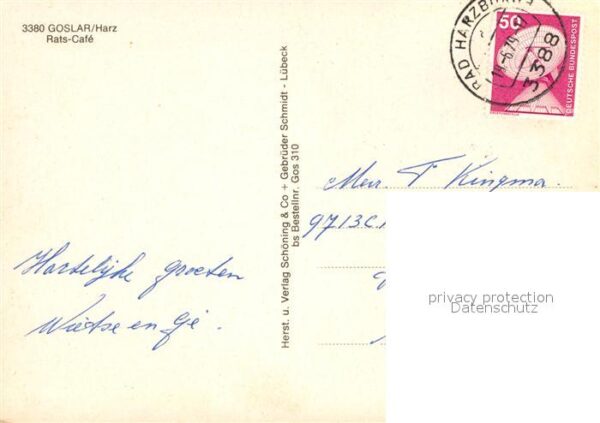 3380 GOSLAR/Harz
Rats-Café
BAD HARZBURG
18.-6.79
3388
50
DEUTSCHE BUNDESPOST
Herst. u. Verlag Schöning & Co + Gebrüder Schmidt - Lübeck
bs Bestellnr. Gos 310
T Kingma.
9713C
Hartelijke groeten
Wietse en
privacy protection
Datenschutz